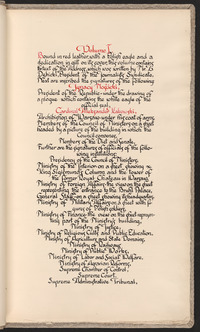 Volume I.
Bound in red leather with a Polish eagle and a
dedication in gilt on its cover, this volume contains
text of the Address, which was written by
Dębicki, President of the Journalists Syndicate.
That are inscribed the signatures of the following
Ignacy Mościcki
President of the Republic - under the drawing of
a plaque which contains the white eagle of the
official seal.
Cardinal Aleksander Kakowski.
Archbishop of Warsaw under his coat of arms.
Members of the Council of Ministers - on a page
headed by a picture of the building in which the
Council convenes.
Members of the Diet and Senate.
Further on the signatures of officials of the follo-
wing institutions:
Presidency of the Council of Ministers,
Ministry of the Interior - on a sheet showing
King Sigismund's Column and the tower of
the former Royal Chateau in Warsaw,
Ministry of Foreign Affairs - the view on the sheet
representing the entrance to the Brühl Palace,
General Staff - on a sheet showing
Ministry of Military Affairs - on a sheet with
of Polish soldiers,
Ministry of Finance - the view on the sheet
part of the Ministry's building,
Ministry of Justice,
Ministry of Religious Cults and Public Education,
Ministry of Agriculture and State Domains,
Ministry of Railways,
Ministry of Public Works,
Ministry of Labor and Social Welfare,
Ministry of Agrarian Reforms,
Supreme Chamber of Control,
Supreme Court,
Supreme Administrative Tribunal.